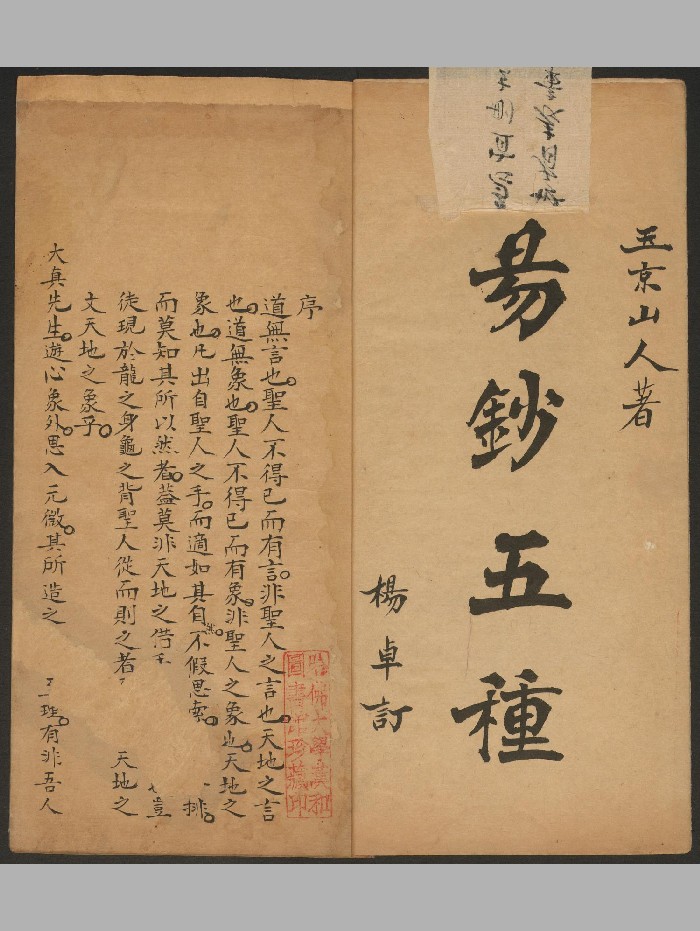 五京山人著
易鈔五種
楊卓訂
序
道無言也。聖人不得已而有言。非聖人之言也。天地之言
也。道無象也。聖人不得已而有象。非聖人之象也。天地之
象也。凡出自聖人之手。而適如其自然。不假思索。排
而莫知其所以然者。葢莫非天地之 豈
徒現於龍之身龜之背聖人從而則之者 天地之
文天地之象乎。
大真先生。遊心象外。思入元微。其所造之 理。有非吾人
哈佛大學漢和
圖書館珍藏印